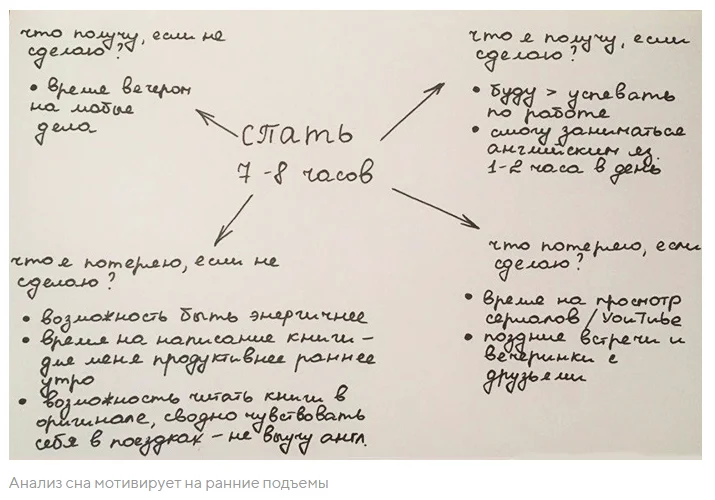 что получу, если не
сделаю?
• время вечером
на любые
дела
что я получу, если
сделаю?
• буду > успевать
по работе
• смогу заниматься
английским яз.
1-2 часа в день
СПАТЬ
7-8 часов
что я потеряю, если не
сделаю?
• возможность быть энергичнее
• время на написание книги –
для меня продуктивнее раннее
утро
• возможность читать книги в
оригинале, сводно чувствовать
себя в поездках – не выучу англ.
что потеряю, если
сделаю?
• время на просмотр
сериалов / YouTube
• поздние встречи и
вечеринки с
друзьями
Анализ сна мотивирует на ранние подъемы